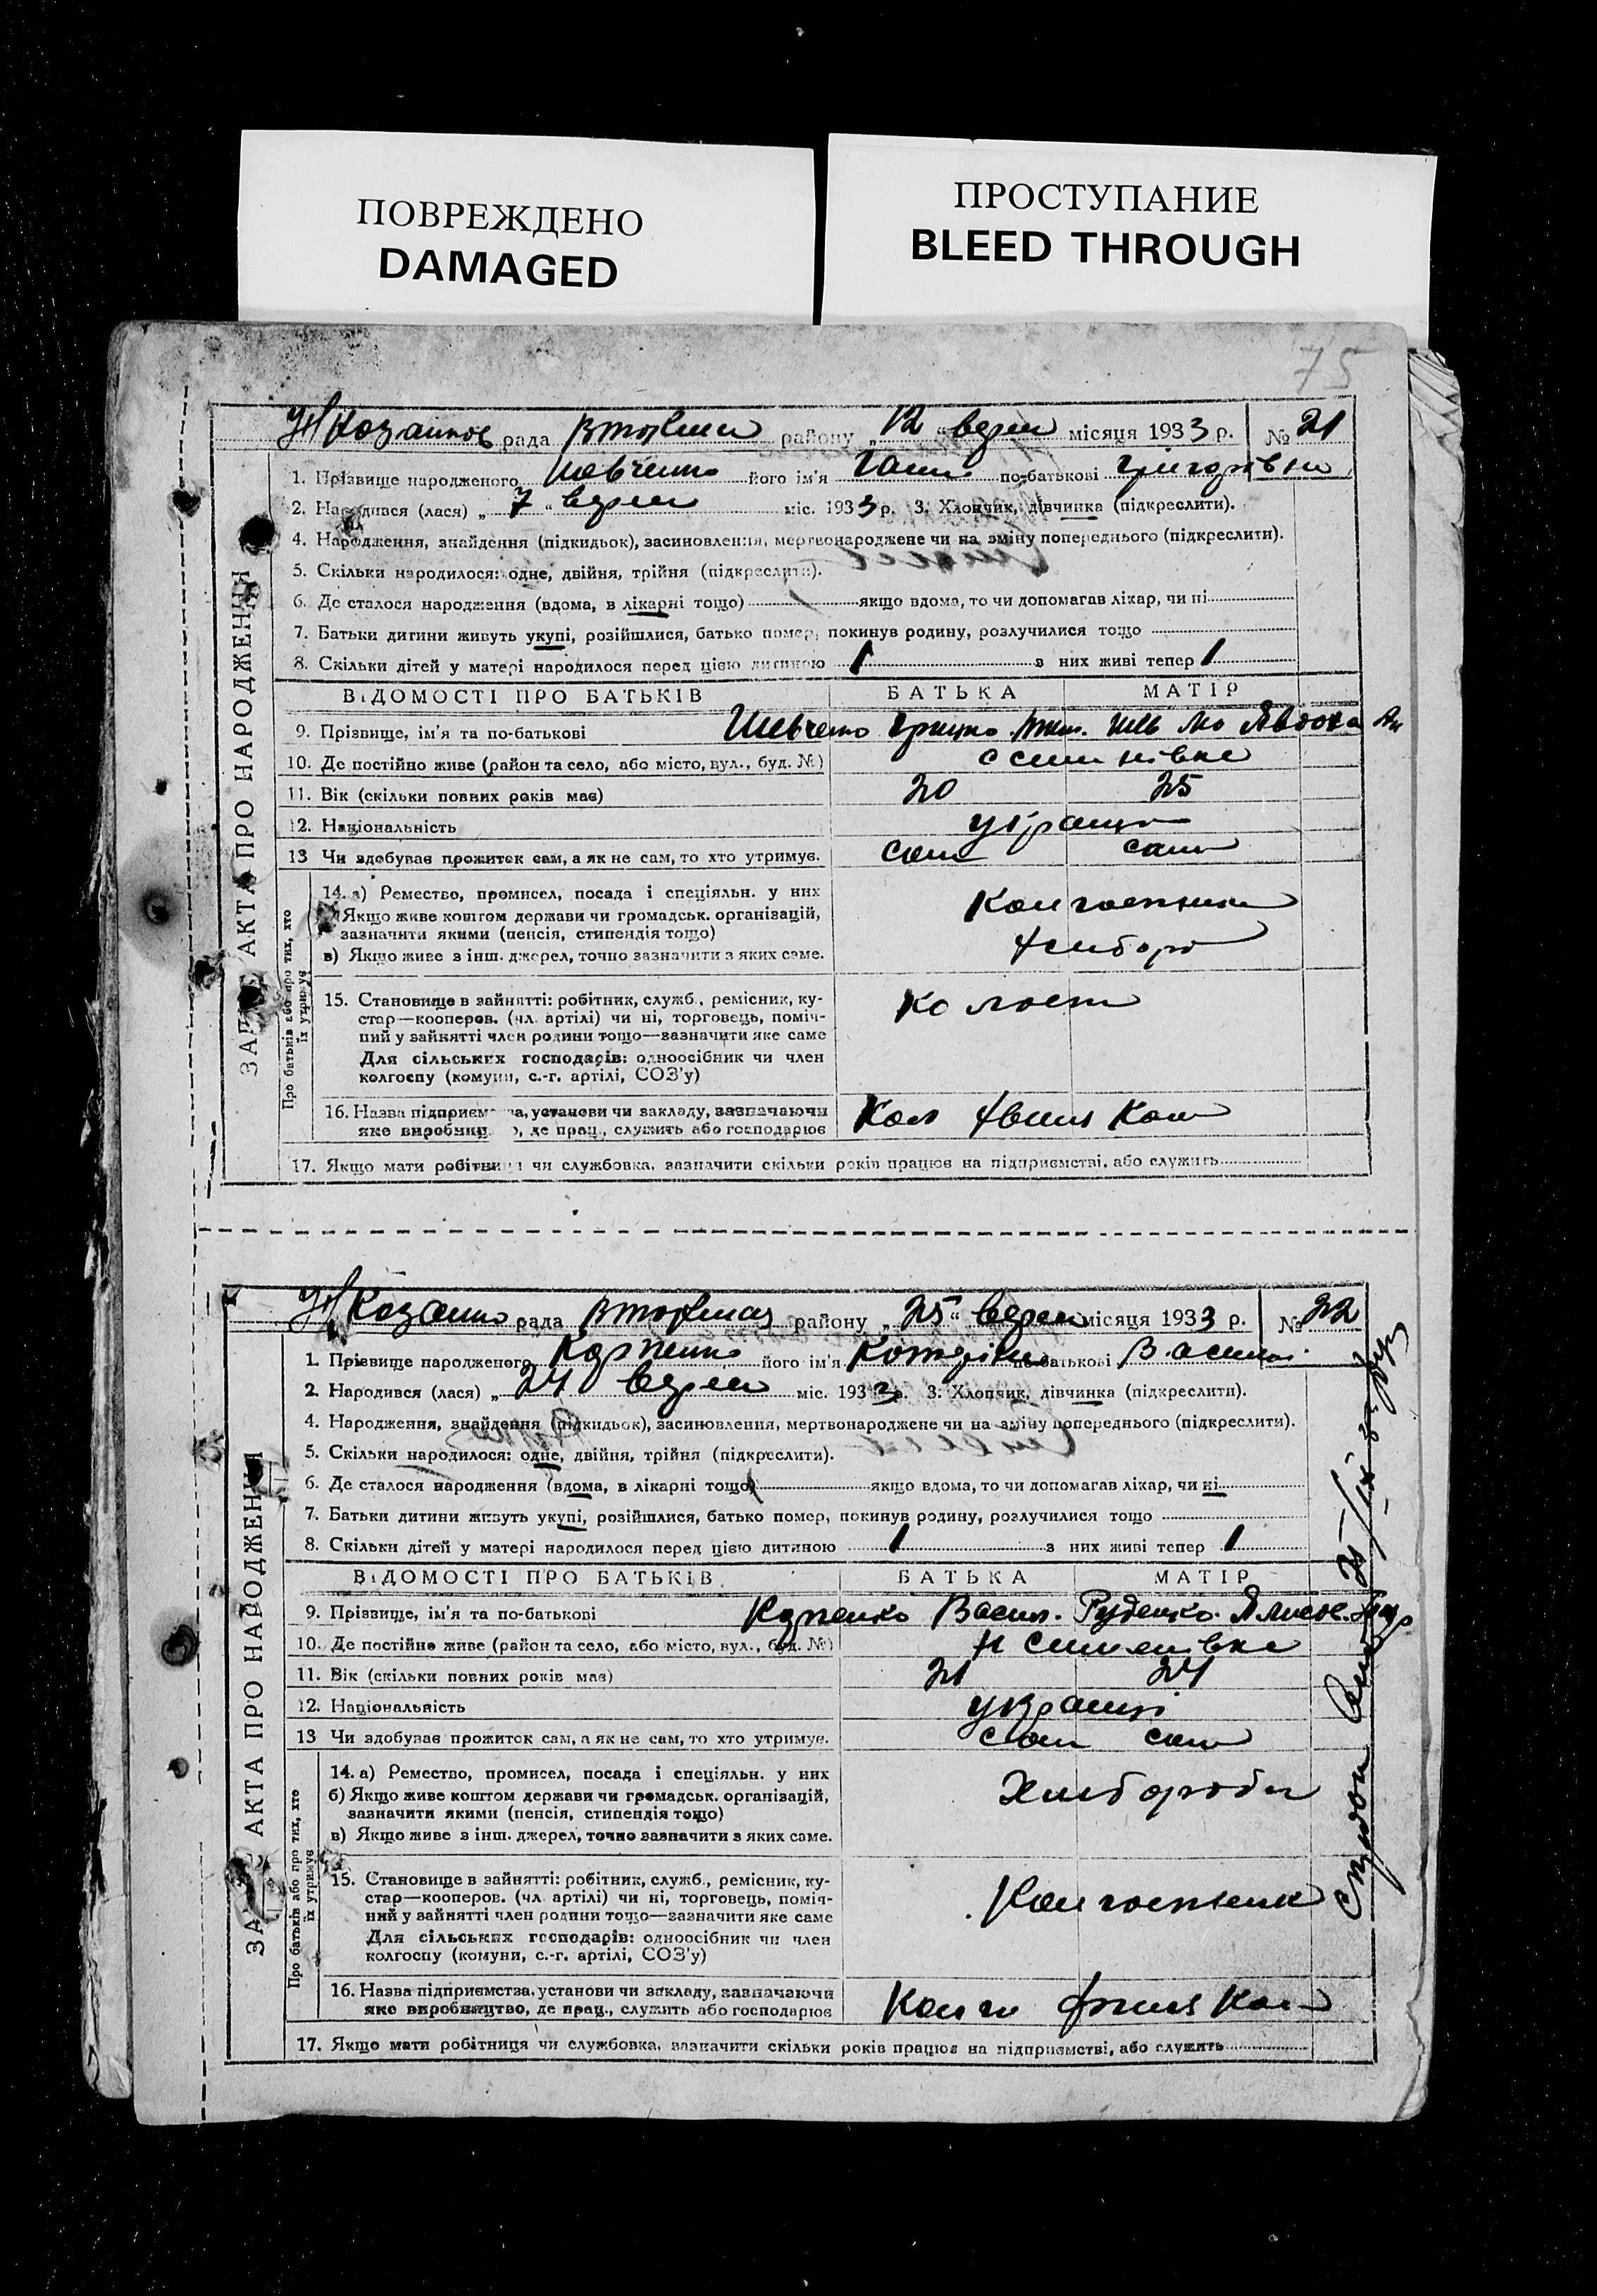 ПОВРЕЖДЕНО
DAMAGED
ПРОСТУПАНИЕ
BLEED THROUGH
75
рада району „ 12 “ верес місяця 1933 р. № 21
1. Прізвище народженого Шевченко його ім'я Ганн по-батькові Григорівна
2. Народився (лася) „ 7 “ верес міс. 1933 р. 3. Хлопчик, дівчинка (підкреслити).
4. Народження, знайдення (підкидьок), засиновлення, мертвонароджене чи на зміну попереднього (підкреслити).
5. Скільки народилося: одне, двійня, трійня (підкреслити).
6. Де сталося народження (вдома, в лікарні тощо) якщо вдома, то чи допомагав лікар, чи ні
7. Батьки дитини живуть укупі, розійшлися, батько помер, покинув родину, розлучилися тощо
8. Скільки дітей у матері народилося перед цією дитиною 1 з них живі тепер 1
ВІДОМОСТІ ПРО БАТЬКІВ БАТЬКА МАТІР
9. Прізвище, ім'я та по-батькові Шевченко Грицко Явдоха
10. Де постійно живе (район та село, або місто, вул., буд. №)
11. Вік (скільки повних років має) 20 25
12. Національність українці
13 Чи здобував прожиток сам, а як не сам, то хто утримує. сам сам
14. а) Ремество, промисел, посада і спеціяльн. у них
Якщо живе коштом держави чи громадськ. організацій,
зазначити якими (пенсія, стипендія тощо)
в) Якщо живе з інш. джерел, точно зазначити з яких саме.
15. Становище в зайнятті: робітник, служб., ремісник, ку-
стар—кооперов. (чл. артілі) чи ні, торговець, поміч-
ний у зайнятті член родини тощо—зазначити яке саме
Для сільських господарів: одноосібник чи член
колгоспу (комуни, с.-г. артілі, СОЗ'у)
16. Назва підприємства, установи чи закладу, зазначаючи
яке виробниц , де прац., служить або господарює
17. Якщо мати робітниця чи службовка, зазначити скільки років працює на підприємстві, або служить
ЗАПИС АКТА ПРО НАРОДЖЕННЯ
Про батьків або про тих, хто
їх утримує
рада району „ 25 “ верес місяця 1933 р. № 22
1. Прізвище народженого Карпенко його ім'я Катерина по-батькові Васил.
2. Народився (лася) „ 24 верес міс. 1933 р. 3. Хлопчик, дівчинка (підкреслити).
4. Народження, знайдення (підкидьок), засиновлення, мертвонароджене чи на зміну попереднього (підкреслити).
5. Скільки народилося: одне, двійня, трійня (підкреслити).
6. Де сталося народження (вдома, в лікарні тощо) якщо вдома, то чи допомагав лікар, чи ні
7. Батьки дитини живуть укупі, розійшлися, батько помер, покинув родину, розлучилися тощо
8. Скільки дітей у матері народилося перед цією дитиною 1 з них живі тепер 1
ВІДОМОСТІ ПРО БАТЬКІВ БАТЬКА МАТІР
9. Прізвище, ім'я та по-батькові Карпенко Васил. Руденко
10. Де постійно живе (район та село, або місто, вул., буд. №)
11. Вік (скільки повних років має) 21 24
12. Національність українці
13 Чи здобував прожиток сам, а як не сам, то хто утримує. сам сам
14. а) Ремество, промисел, посада і спеціяльн. у них Хлібороби
б) Якщо живе коштом держави чи громадськ. організацій,
зазначити якими (пенсія, стипендія тощо)
в) Якщо живе з інш. джерел, точно зазначити з яких саме.
15. Становище в зайнятті: робітник, служб., ремісник, ку-
стар—кооперов. (чл. артілі) чи ні, торговець, поміч-
ний у зайнятті член родини тощо—зазначити яке саме
Для сільських господарів: одноосібник чи член
колгоспу (комуни, с.-г. артілі, СОЗ'у)
16. Назва підприємства, установи чи закладу, зазначаючи
яке виробництво, де прац., служить або господарює
17. Якщо мати робітниця чи службовка, зазначити скільки років працює на підприємстві, або служить
ЗА АКТА ПРО НАРОДЖЕННЯ
Про батьків або про тих, хто
їх утримує